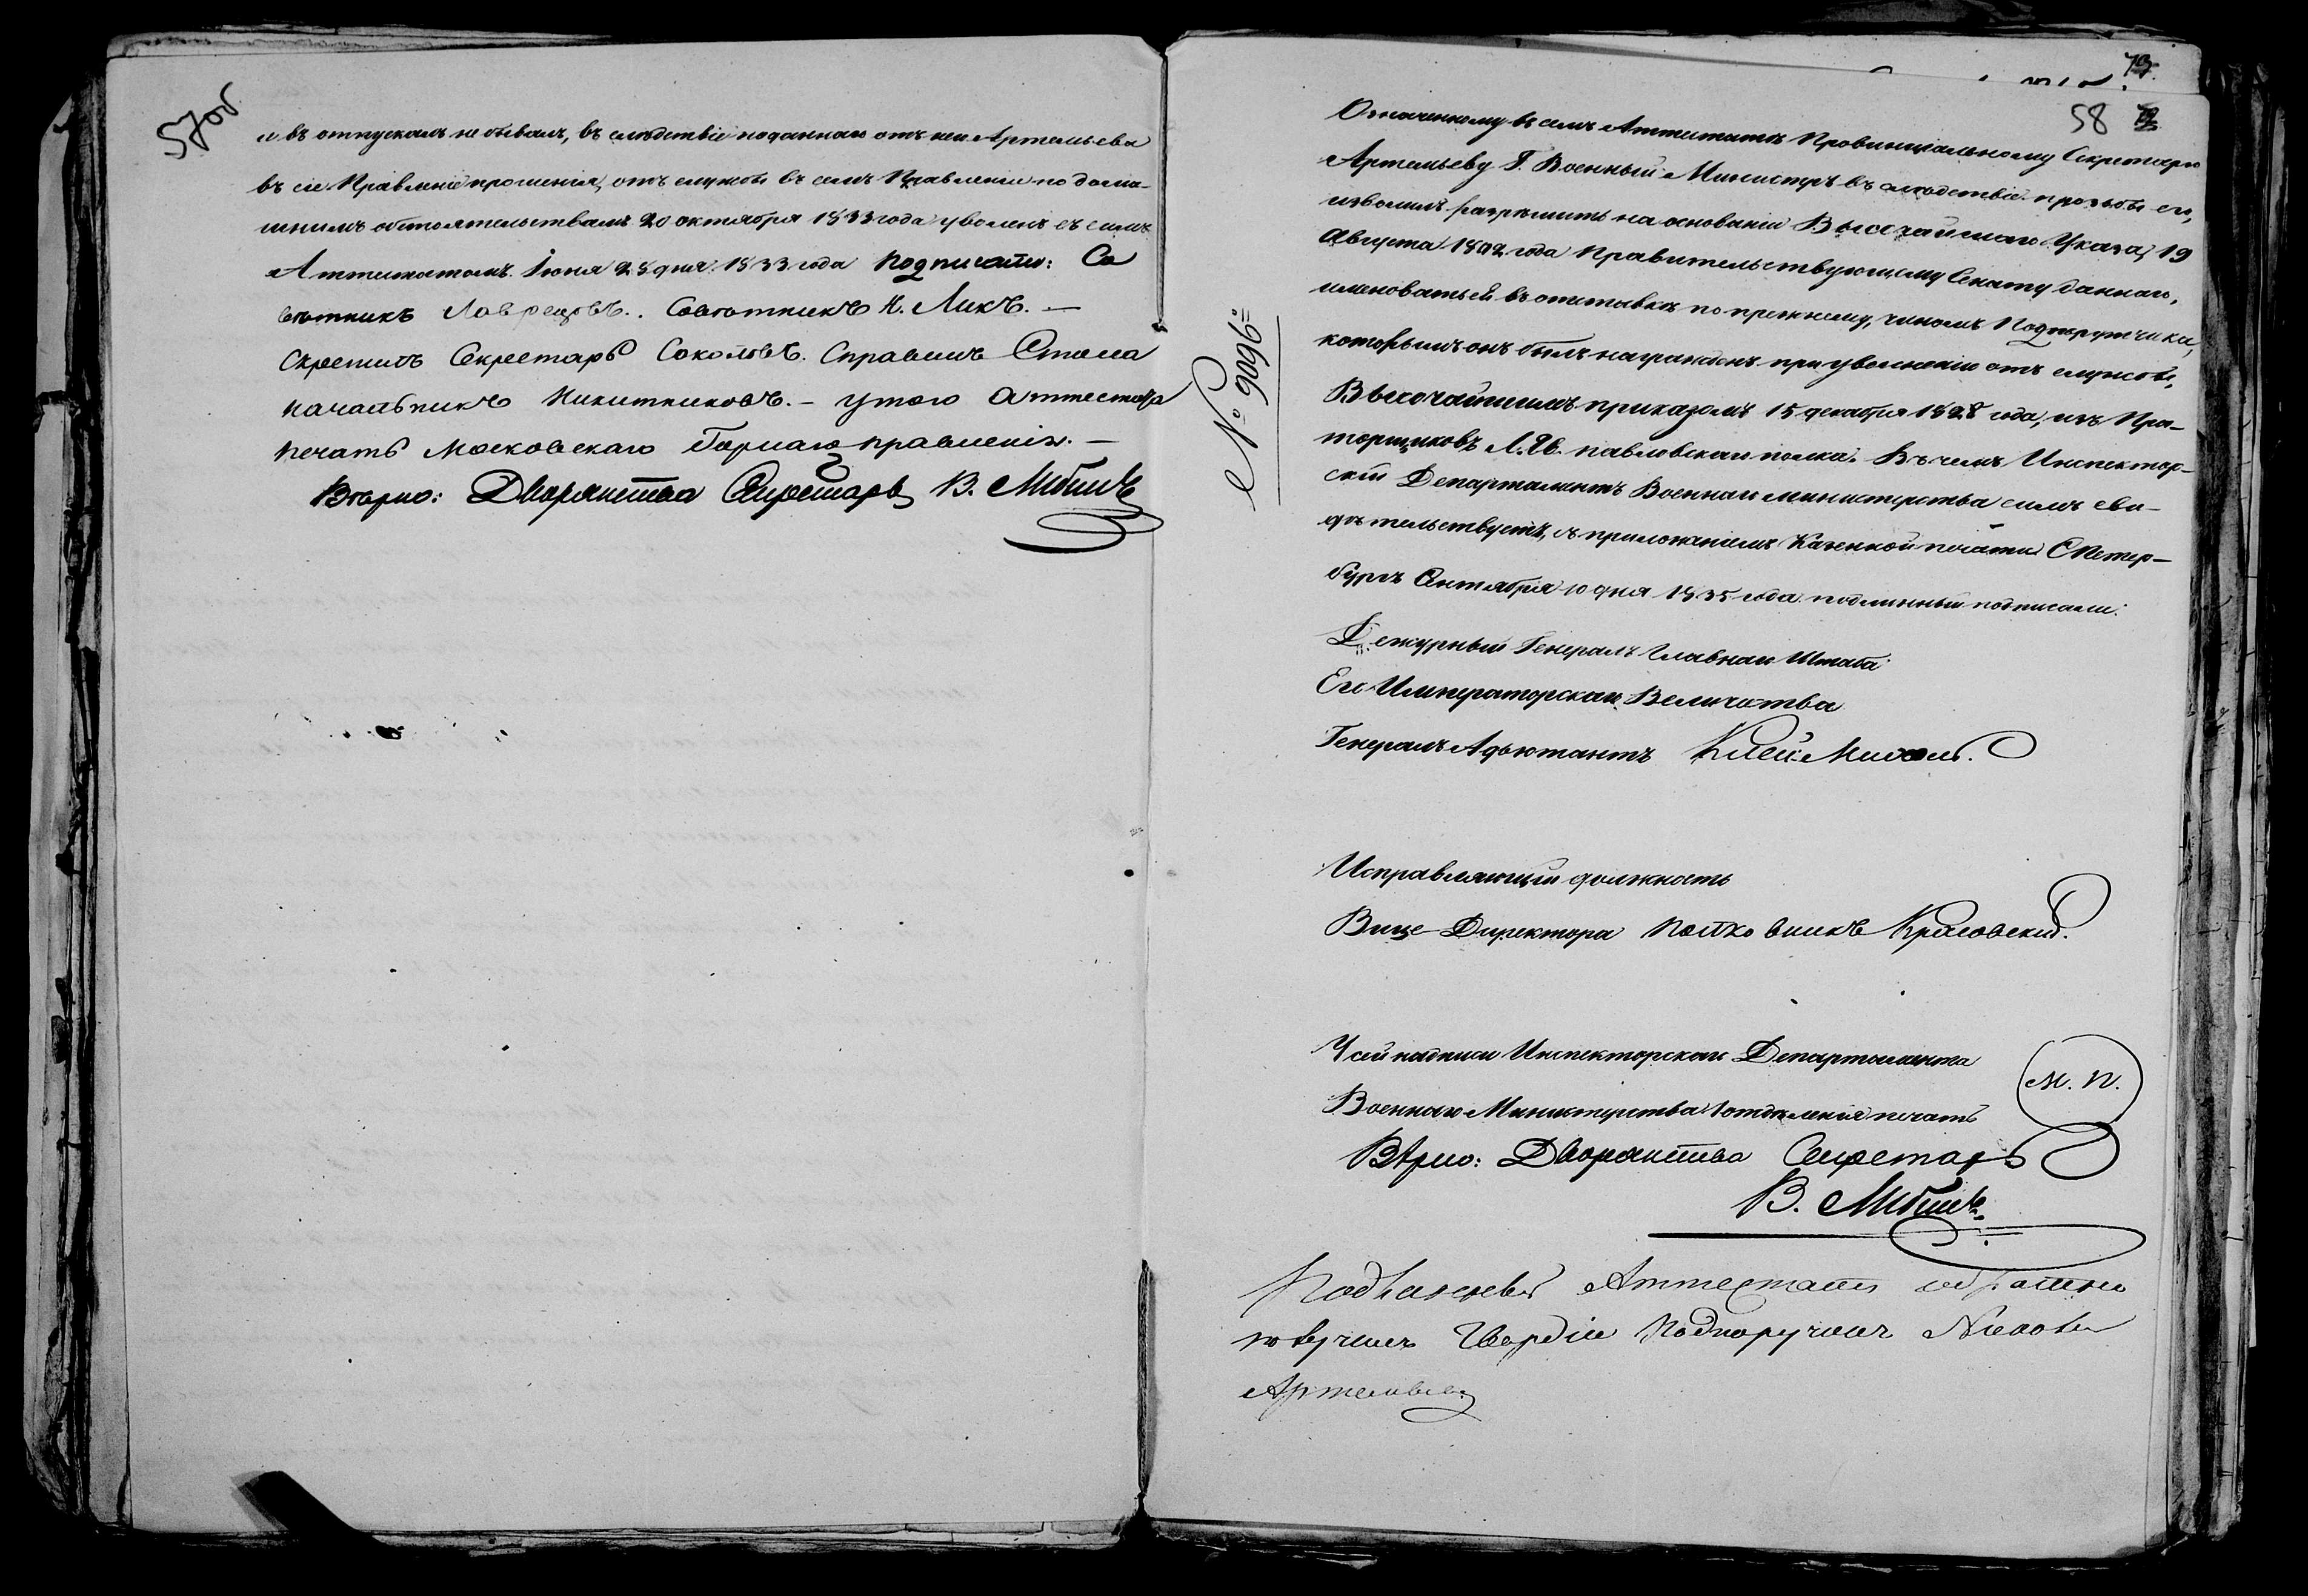 57об
и въ отпускахъ не бывалъ, въ слѣдствіе поданнаго отъ него Артемьева
въ сіе Правленіе прошенія, отъ службы въ семъ Правленіи по дома-
шнимъ обстоятельствамъ 20 октября 1833 года уволенъ съ симъ
Аттестатомъ. Іюня 28 дня 1833 года Подписали: Со
вѣтникъ Совѣтникъ
Скрепилъ Секретарь Соколовъ. Справилъ Стола
начальникъ Никитниковъ. – у того аттестата
печать Московскаго Горнаго правленія. –
Вѣрно: Дворянства Секретарь В.
79
58
Означенному въ семъ Аттестатѣ Провинціальному Секретарю
Артемьеву Г. Военный Министръ въ слѣдствіе прозьбы его,
изволилъ разрѣшить на основаніи Высочайшаго Указа, 19
Августа 1802 года Правительствующему Сенату даннаго,
именоваться въ отставкѣ по прежнему, чиномъ Подпоручика,
которымъ онъ былъ награжденъ при увольненіи отъ службы,
Высочайшимъ приказомъ 15 декабря 1828 года, изъ Пра-
порщиковъ Л. Гв. павловскаго полка. Въ чемъ Инспектор-
скій Департаментъ Военнаго министерства симъ сви-
дѣтельствуетъ, съ приложеніемъ Казенной печати СПетер-
бургъ Сентября 10 дня 1835 года подлинный подписали:
Дежурный Генералъ Главнаго Штаба
Его Императорскаго Величества
Генералъ Адъютантъ Клейнмихель.
№ 9096
Исправляющій должность
Вице-Директора Полковникъ Красовскій.
У сей надписи Инспекторскаго Департамента
Военнаго Министерства 1 отдѣленія печать
М. П.
Вѣрно: Дворянства Секретарь
В.
Подлинной Аттестатъ обратно
получилъ Гвардіи Подпоручикъ
Артемьевъ